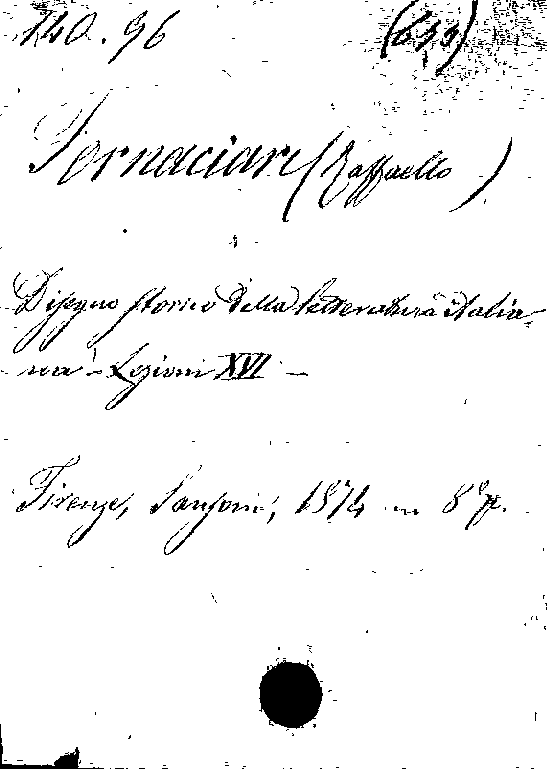 240.96 (633)
Fornaciari (Raffaello)
Disegno storico della letteratura italia-
na - Lezioni XVI -
Firenze, Sansoni, 1874 in 8° p.